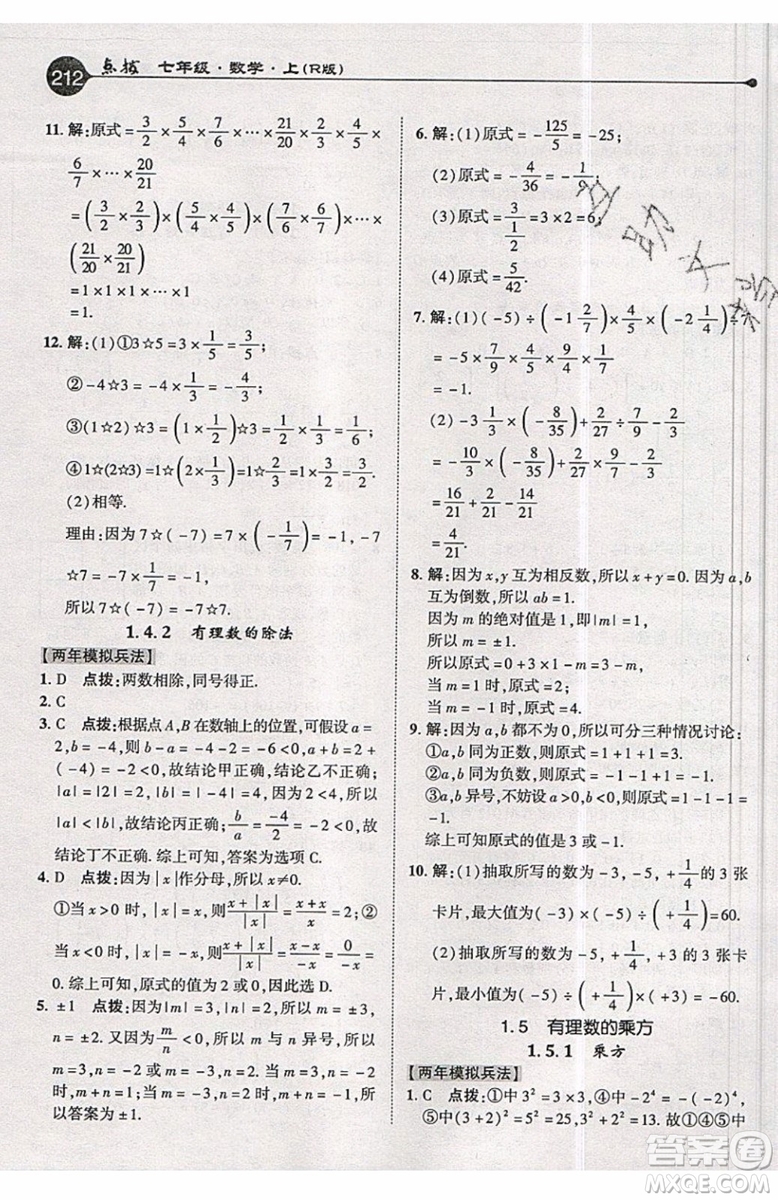 212 点拨 七年级·数学·上(R版)
11. 解:原式 = 3/2 × 5/4 × 7/6 × … × 21/20 × 2/3 × 4/5 ×
6/7 × … × 20/21
= (3/2 × 2/3) × (5/4 × 4/5) × (7/6 × 6/7) × … ×
(21/20 × 20/21)
= 1 × 1 × … × 1
= 1.
12. 解:(1)①3☆5 = 3 × 1/5 = 3/5;
②-4☆3 = -4 × 1/3 = -4/3;
③(1☆2)☆3 = (1 × 1/2)☆3 = 1/2 × 1/3 = 1/6;
④1☆(2☆3) = 1☆(2 × 1/3) = 1 × 3/2 = 3/2.
(2)相等.
理由:因为 7☆(-7) = 7 × (-1/7) = -1, -7
☆7 = -7 × 1/7 = -1,
所以 7☆(-7) = -7☆7.
1.4.2 有理数的除法
【两年模拟兵法】
1. D 点拨:两数相除,同号得正.
2. C
3. C 点拨:根据点 A,B 在数轴上的位置,可假设 a =
2,b = -4,则 b - a = -4 - 2 = -6 < 0,a + b = 2 +
(-4) = -2 < 0,故结论甲正确,结论乙不正确;
|a| = |2| = 2,|b| = |-4| = 4,因为 2 < 4,所以
|a| < |b|,故结论丙正确;b/a = -4/2 = -2 < 0,故
结论丁不正确.综上可知,答案为选项 C.
4. D 点拨:因为|x|作分母,所以|x| ≠ 0,即 x ≠ 0.
①当 x > 0 时,|x| = x,所以 x + |x|/x = x + x/x = 2;②
当 x < 0 时,|x| = -x,所以 x + |x|/x = x - x/x = 0/x =
0.综上可知,原式的值为 2 或 0,因此选 D.
5. ±1 点拨:因为|m| = 3,|n| = 2,所以 m = ±3,
n = ±2.又因为 m/n < 0,所以 m 与 n 异号,所以
m = 3,n = -2 或 m = -3,n = 2.当 m = 3,n = -2
时,m + n = 1;当 m = -3,n = 2 时,m + n = -1.所
以答案为 ±1.
6. 解:(1)原式 = -125/5 = -25;
(2)原式 = -4/36 = -1/9;
(3)原式 = 3/(1/2) = 3 × 2 = 6;
(4)原式 = 5/42.
7. 解:(1)(-5) ÷ (-1 2/7) × 4/5 × (-2 1/4) ÷ 7
= -5 × 7/9 × 4/5 × 9/4 × 1/7
= -1.
(2) -3 1/3 × (-8/35) + 2/27 ÷ 1/9 - 2/7 ÷ 2/3
= -10/3 × (-8/35) + 2/27 × 9 - 2/7 × 3/2
= 16/21 + 2/21 - 14/21
= 4/21.
8. 解:因为 x,y 互为相反数,所以 x + y = 0.因为 a,b
互为倒数,所以 ab = 1.
因为 m 的绝对值是 1,即|m| = 1,所以 m = ±1,
当 m = 1 时,原式 = 0 + 1 + 1 = 2;
当 m = -1 时,原式 = 0 + 1 - 1 = 0.
9. 解:因为 a,b 都不为 0,所以可分三种情况讨论:
①a,b 同为正数,则原式 = 1 + 1 + 1 = 3.
②a,b 同为负数,则原式 = -1 - 1 + 1 = -1.
③a,b 异号,不妨设 a > 0,b < 0,则原式 = 1 - 1 - 1 =
-1.
综上可知原式的值是 3 或 -1.
10. 解:(1)抽取所写的数为 -3,-5,+1/4 的 3 张
卡片,最大值为(-3) × (-5) ÷ (+1/4) = 60.
(2)抽取所写的数为 -5,+3,+1/4 的 3 张卡
片,最小值为(-5) × (+3) ÷ (+1/4) = -60.
1.5 有理数的乘方
1.5.1 乘方
【两年模拟兵法】
1. C 点拨:①中3² = 9,2³ = 8,④中 -2⁴ = -(-2)⁴,
⑤中(3 + 2)² = 5² = 25,3² + 2² = 13.故①④⑤中
互助文档
答案圈